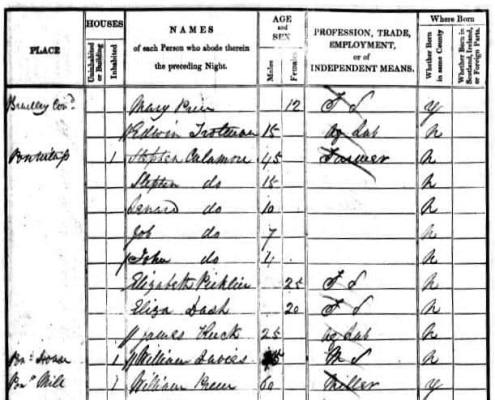 PLACE
HOUSES
Uninhabited or Building
Inhabited
NAMES
of each Person who abode therein
the preceding Night.
AGE
and
SEX
Males
Females
PROFESSION, TRADE,
EMPLOYMENT,
or of
INDEPENDENT MEANS.
Where Born
Whether Born in same County
Whether Born in Scotland, Ireland, or Foreign Parts.
Mary 12 F S y
Edwin Trotman 15 Ag Lab N
1 Stephen 45 Farmer N
Stephen do 15 N
do 10 N
Job do 7 N
John do 4 N
Elizabeth 25 F S N
Eliza Dash 20 F S N
James Huck 25 Ag Lab N
House 1 William Davies M S N
Mill 1 William 60 Miller y